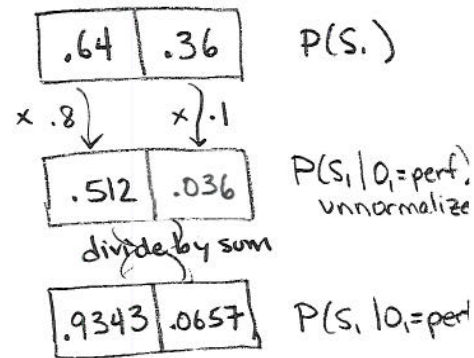 .64 .36 P(S₁)
x .8 x .1
.512 .036 P(S₁|O₁=perf)
unnormalize
divide by sum
.9343 .0657 P(S₁|O₁=perf